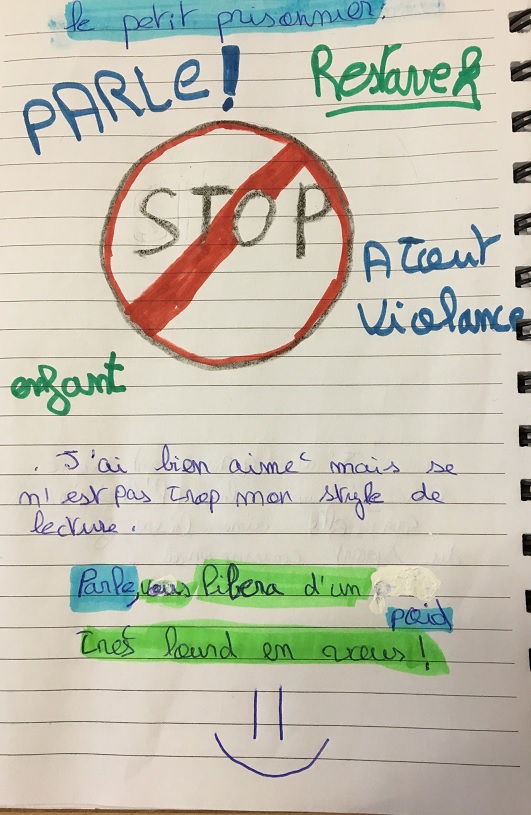 le petit prisonnier.
PARLE!
RestaveK
STOP
A Tout
Violance
enfant
. J'ai bien aimé mais se
n'est pas trop mon style de
lecture.
Parle, vous libera d'un
poid
trés lourd en vous!